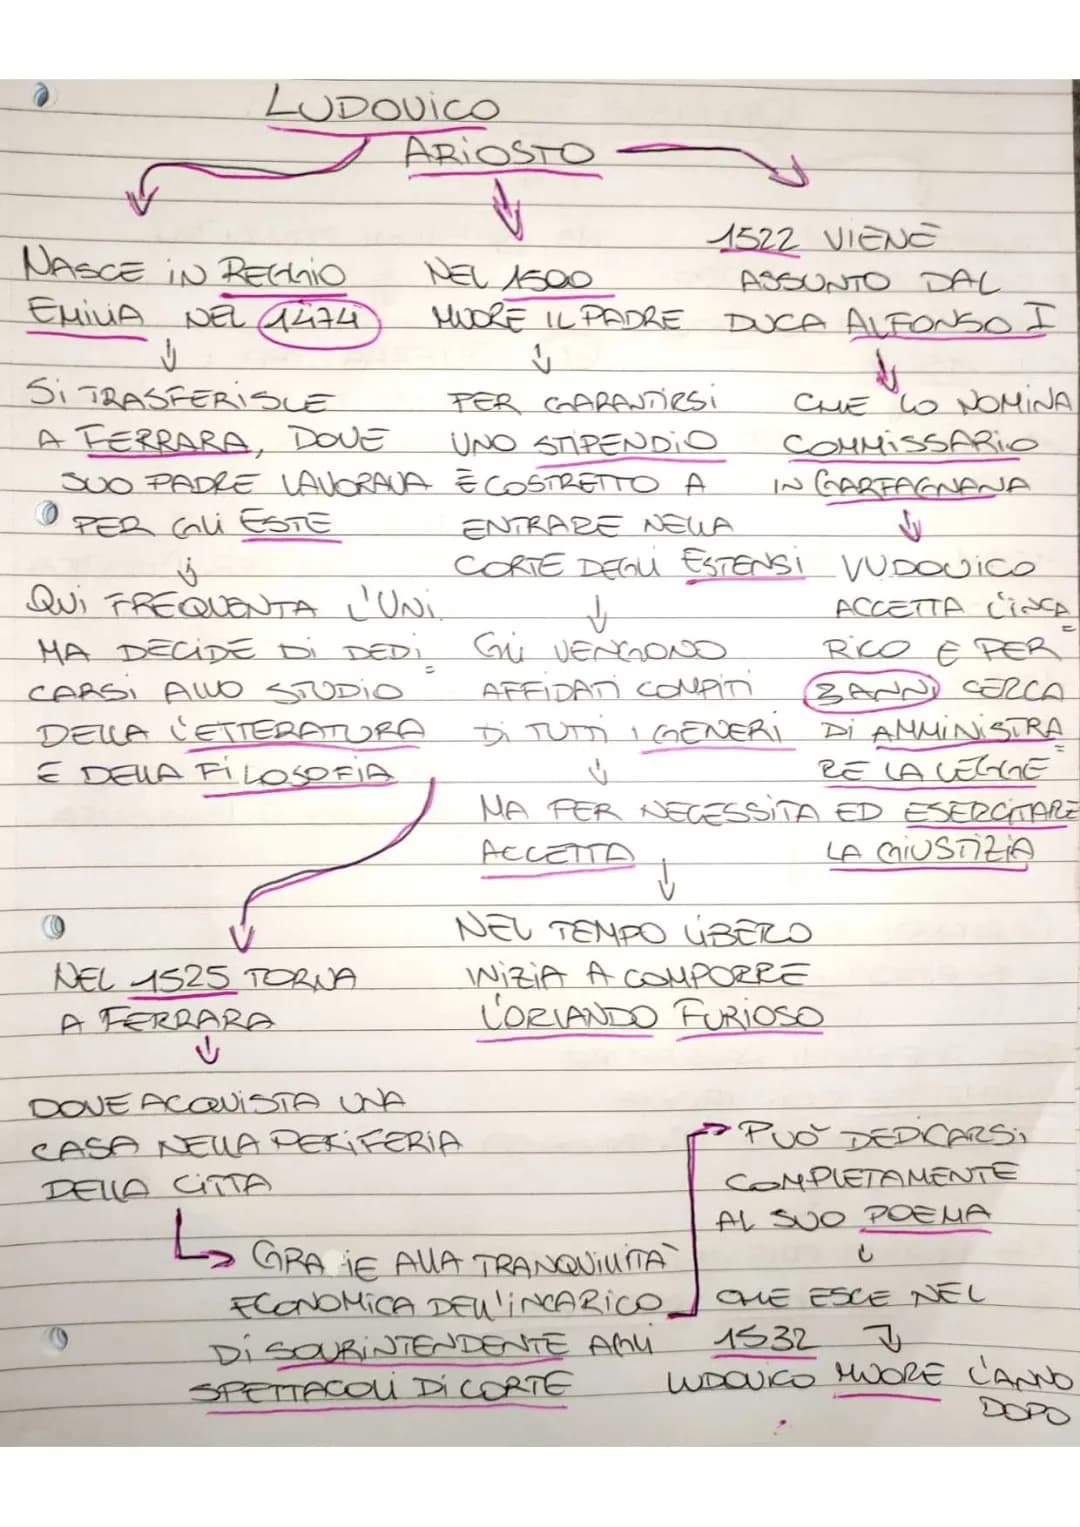 LUDOVICO
ARIOSTO
NASCE IN REGGIO
EMILIA NEL 1474
SI TRASFERISCE
A FERRARA, DOVE
SUO PADRE LAVORAVA
PER GLI ESTE
QUI FREQUENTA L'UNI.
MA DECIDE DI DEDI=
CARSI ALLO STUDIO
DELLA LETTERATURA
E DELLA FILOSOFIA
NEL 1500
MUORE IL PADRE
PER GARANTIRSI
UNO STIPENDIO
È COSTRETTO A
ENTRARE NELLA
CORTE DEGLI ESTENSI
GLI VENGONO
AFFIDATI COMPITI
DI TUTTI I GENERI
MA PER NECESSITA
ACCETTA
NEL TEMPO LIBERO
INIZIA A COMPORRE
L'ORLANDO FURIOSO
1522 VIENE
ASSUNTO DAL
DUCA ALFONSO I
CHE LO NOMINA
COMMISSARIO
IN GARFAGNANA
LUDOVICO
ACCETTA L'INCA=
RICO E PER
3 ANNI CERCA
DI AMMINISTRA=
RE LA LEGGE
ED ESERCITARE
LA GIUSTIZIA
NEL 1525 TORNA
A FERRARA
DOVE ACQUISTA UNA
CASA NELLA PERIFERIA
DELLA CITTA
GRA IE ALLA TRANQUILLITÀ
ECONOMICA DELL'INCARICO
DI SOURINTENDENTE AGLI
SPETTACOLI DI CORTE
PUÒ DEDICARSI
COMPLETAMENTE
AL SUO POEMA
CHE ESCE NEL
1532
LUDOVICO MUORE L'ANNO
DOPO